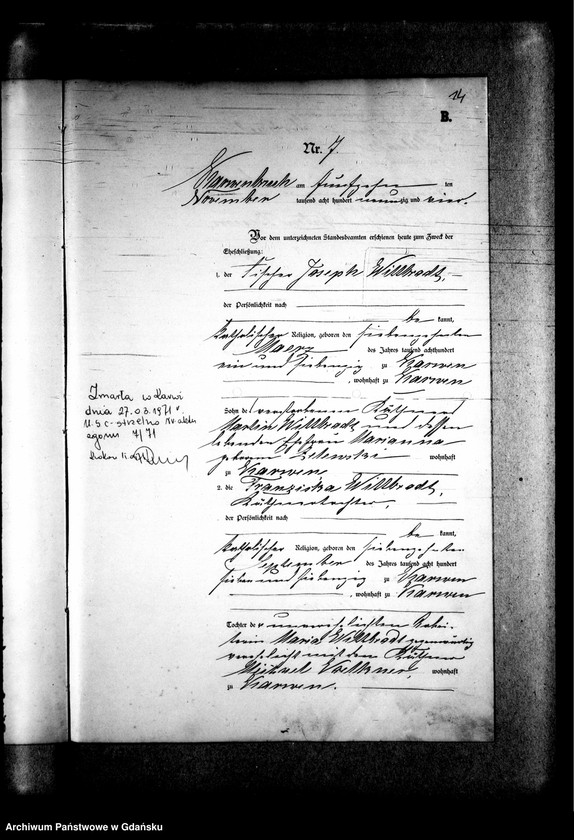 14
B.
Nr. 7.
Karwenbruch am fünfzehn ten
November tausend acht hundert neunzig und vier.
Vor dem unterzeichneten Standesbeamten erschienen heute zum Zweck der
Eheschließung:
1. der Fischer Joseph Willbrodt,
der Persönlichkeit nach
be kannt,
katholischer Religion, geboren den siebenzehnten
Maerz des Jahres tausend achthundert
ein und siebenzig zu Karwen
, wohnhaft zu Karwen
Sohn des verstorbenen Käthners
Martin Willbrodt und dessen
lebenden Ehefrau Marianna
geborene Zelewski wohnhaft
zu Karwen
2. die Franziska Willbrodt,
Käthnertochter,
der Persönlichkeit nach
be kannt,
katholischer Religion, geboren den siebenzehnten
September des Jahres tausend acht hundert
sieben und siebenzig zu Karwen
, wohnhaft zu Karwen
Tochter der unverehelichten Arbei-
terin Maria Willbrodt gegenwärtig
verehelicht mit dem Käthner
Michael Voelkner, wohnhaft
zu Karwen.
Zmarła w Karwi
dnia 27.03.1971 r.
U.S.C. Strzelno Nr aktu
zgonu 7/71
Archiwum Państwowe w Gdańsku